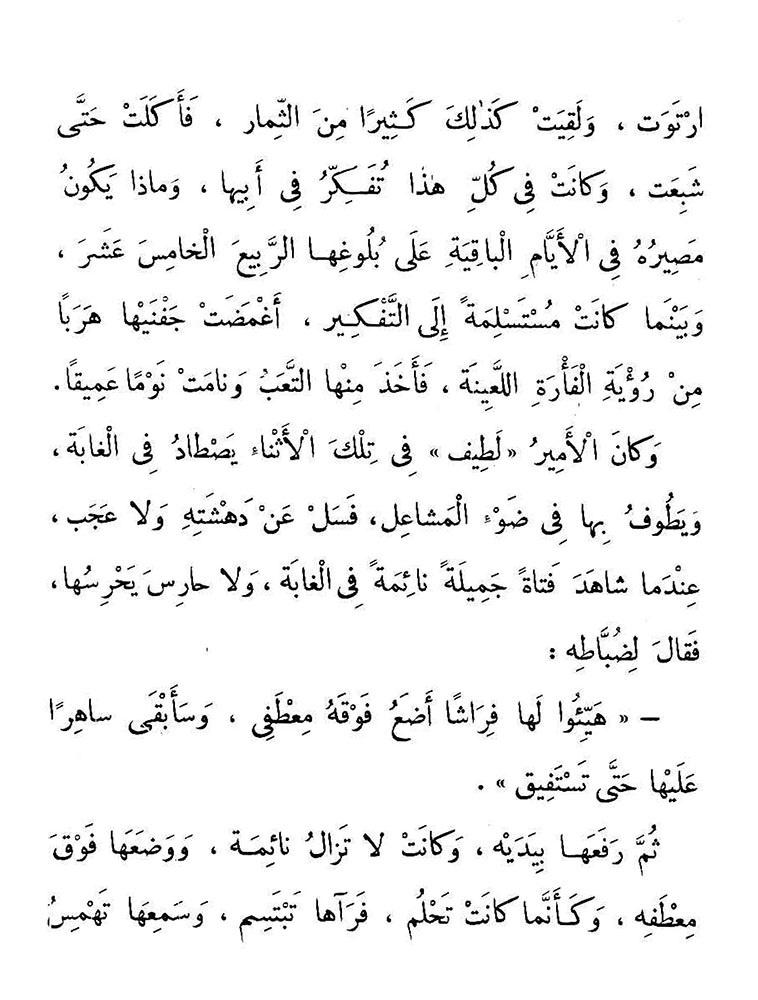 ارْتَوَت ، وَلَقِيَتْ كَذٰلِكَ كَثِيرًا مِنَ الثِّمار ، فَأَكَلَتْ حَتَّى
شَبِعَت ، وَكانَتْ فِي كُلِّ هٰذا تُفَكِّرُ فِي أَبِيها ، وَماذا يَكُونُ
مَصِيرُهُ فِي الْأَيَّامِ الْباقِيَةِ عَلَى بُلُوغِها الرَّبِيعَ الْخامِسَ عَشَرَ ،
وَبَيْنَما كانَتْ مُسْتَسْلِمَةً إِلَى التَّفْكِير ، أَغْمَضَتْ جَفْنَيْها هَرَبًا
مِنْ رُؤْيَةِ الْفَأْرَةِ اللَّعِينَة ، فَأَخَذَ مِنْها التَّعَبُ وَنامَتْ نَوْمًا عَمِيقًا .
وَكانَ الْأَمِيرُ « لَطِيف » فِي تِلْكَ الْأَثْناءِ يَصْطادُ فِي الْغابَة ،
وَيَطُوفُ بِها فِي ضَوْءِ الْمَشاعِل ، فَسَلْ عَنْ دَهْشَتِهِ وَلا عَجَب ،
عِنْدَما شاهَدَ فَتاةً جَمِيلَةً نائِمَةً فِي الْغابَة ، وَلا حارِسَ يَحْرِسُها ،
فَقالَ لِضُبَّاطِه :
— « هَيِّئُوا لَها فِرَاشًا أَضَعُ فَوْقَهُ مِعْطَفِي ، وَسَأَبْقَى ساهِرًا
عَلَيْها حَتَّى تَسْتَفِيق » .
ثُمَّ رَفَعَها بِيَدَيْه ، وَكانَتْ لا تَزالُ نائِمَة ، وَوَضَعَها فَوْقَ
مِعْطَفِه ، وَكَأَنَّما كانَتْ تَحْلُم ، فَرَآها تَبْتَسِم ، وَسَمِعَها تَهْمِسُ